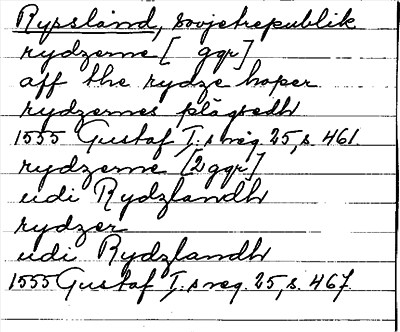 Ryssland, Sovjetrepublik
rydzerne [ ggr]
aff the rydze hoper
rydzernes plägsedh
1555 Gustaf I:s reg. 25, s. 461.
rydzerne [2 ggr]
udi Rydzlandh
rydzer
udi Rydzlandh
1555 Gustaf I:s reg. 25, s. 467.